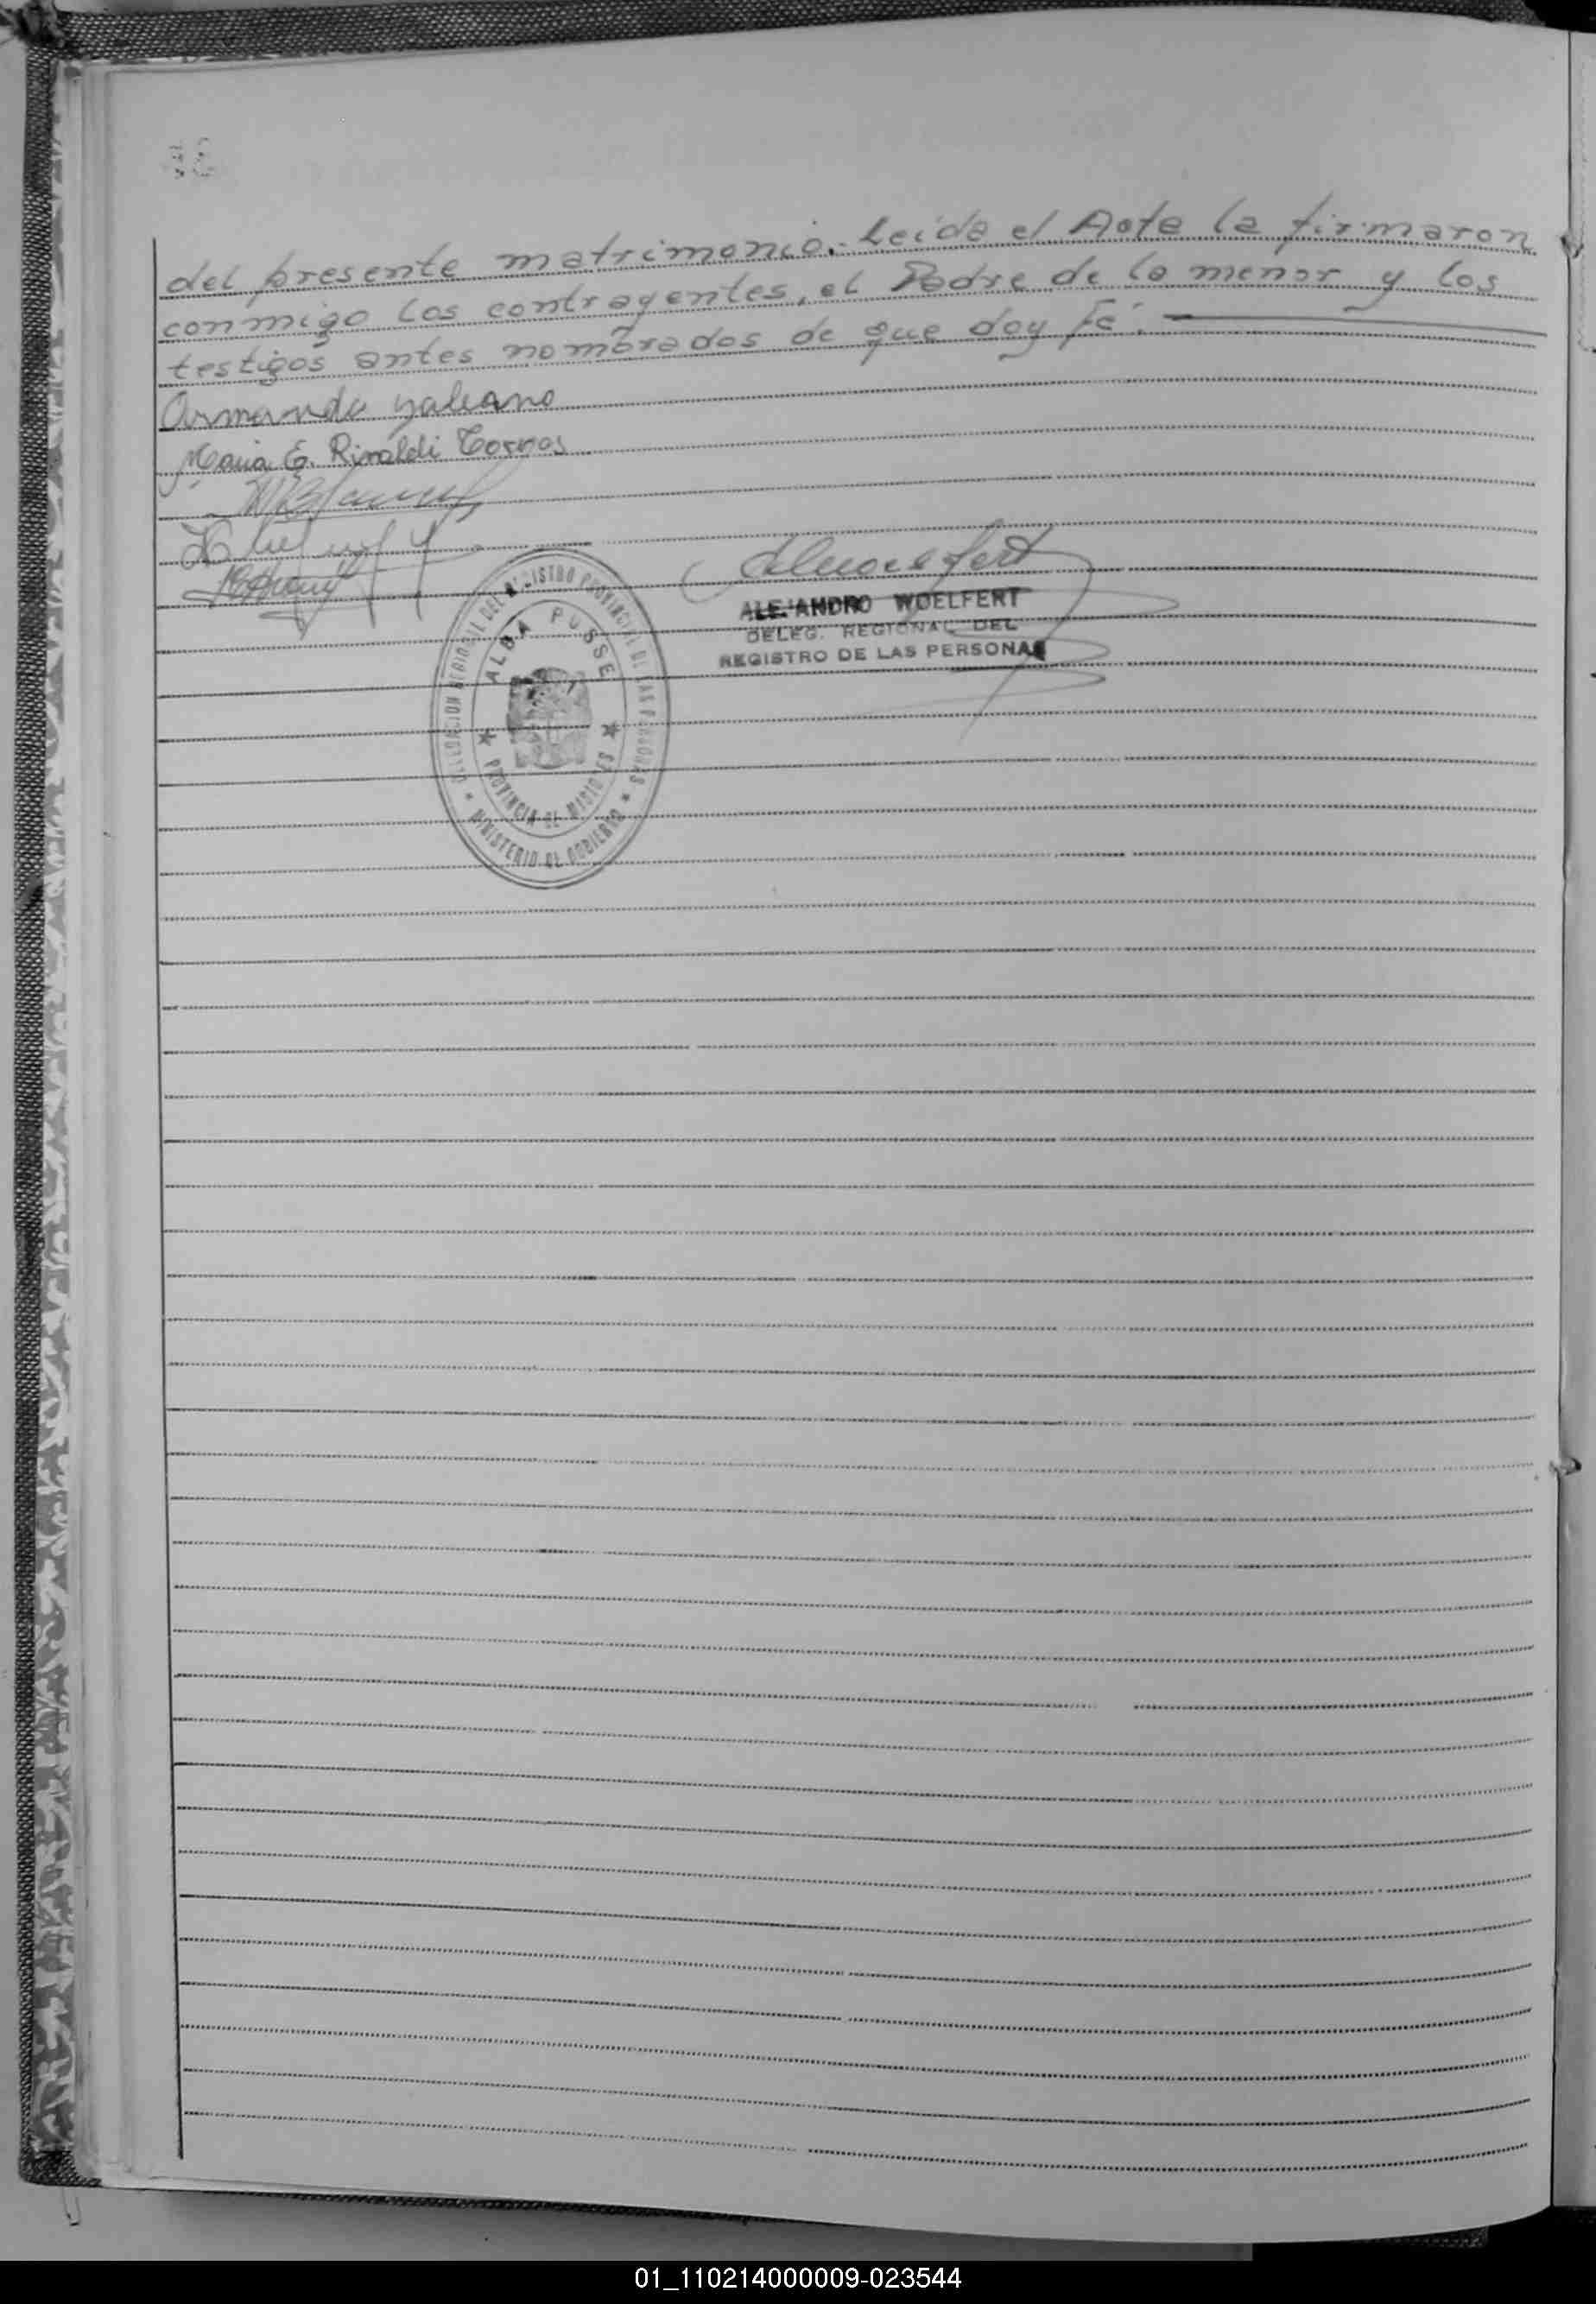 del presente matrimonio. Leída el Acta la firmaron
conmigo los contrayentes, el Padre de la menor y los
testigos antes nombrados de que doy Fé.
Armando Galeano
Maria E. Rinaldi
ALEJANDRO WOELFERT
DELEG. REGIONAL DEL
REGISTRO DE LAS PERSONAS
DELEGACION REGIONAL DEL REGISTRO PROVINCIAL DE LAS PERSONAS
ALBA POSSE
PROVINCIA DE MISIONES
MINISTERIO DE GOBIERNO
01_110214000009-023544